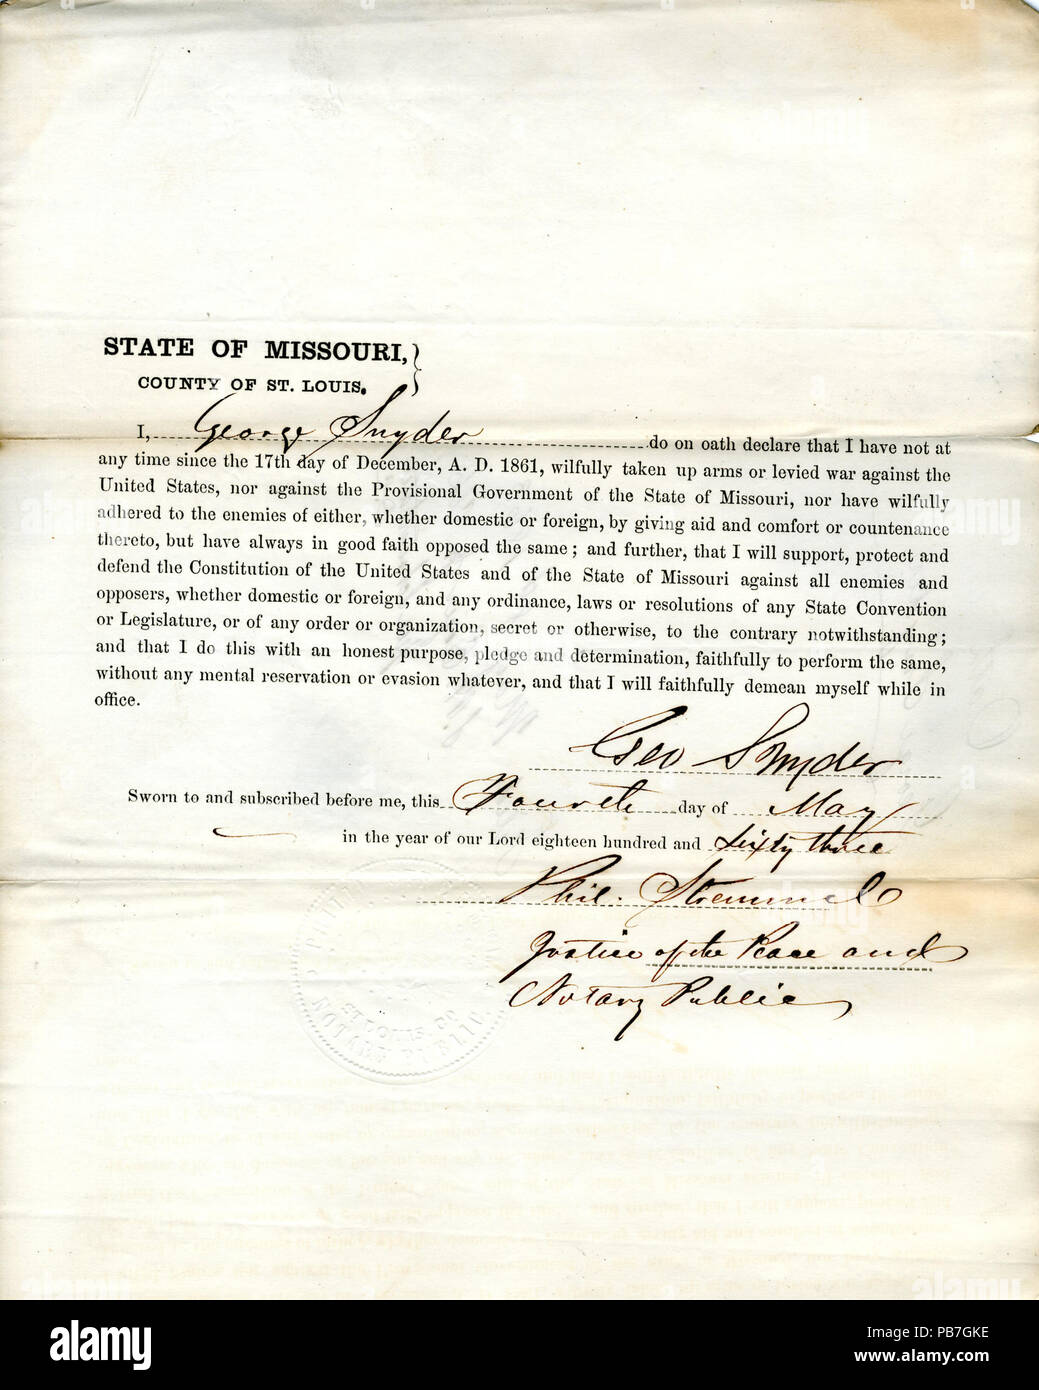 STATE OF MISSOURI,
COUNTY OF ST. LOUIS.
I, George Snyder do on oath declare that I have not at
any time since the 17th day of December, A. D. 1861, wilfully taken up arms or levied war against the
United States, nor against the Provisional Government of the State of Missouri, nor have wilfully
adhered to the enemies of either, whether domestic or foreign, by giving aid and comfort or countenance
thereto, but have always in good faith opposed the same; and further, that I will support, protect and
defend the Constitution of the United States and of the State of Missouri against all enemies and
opposers, whether domestic or foreign, and any ordinance, laws or resolutions of any State Convention
or Legislature, or of any order or organization, secret or otherwise, to the contrary notwithstanding;
and that I do this with an honest purpose, pledge and determination, faithfully to perform the same,
without any mental reservation or evasion whatever, and that I will faithfully demean myself while in
office.
Geo Snyder
Sworn to and subscribed before me, this Fourth day of May
in the year of our Lord eighteen hundred and sixty three
Phil. Stremmel
Justice of the Peace and
Notary Public
ST. LOUIS CO
NOTARY PUBLIC.
alamy
Image ID: PB7GKE
www.alamy.com